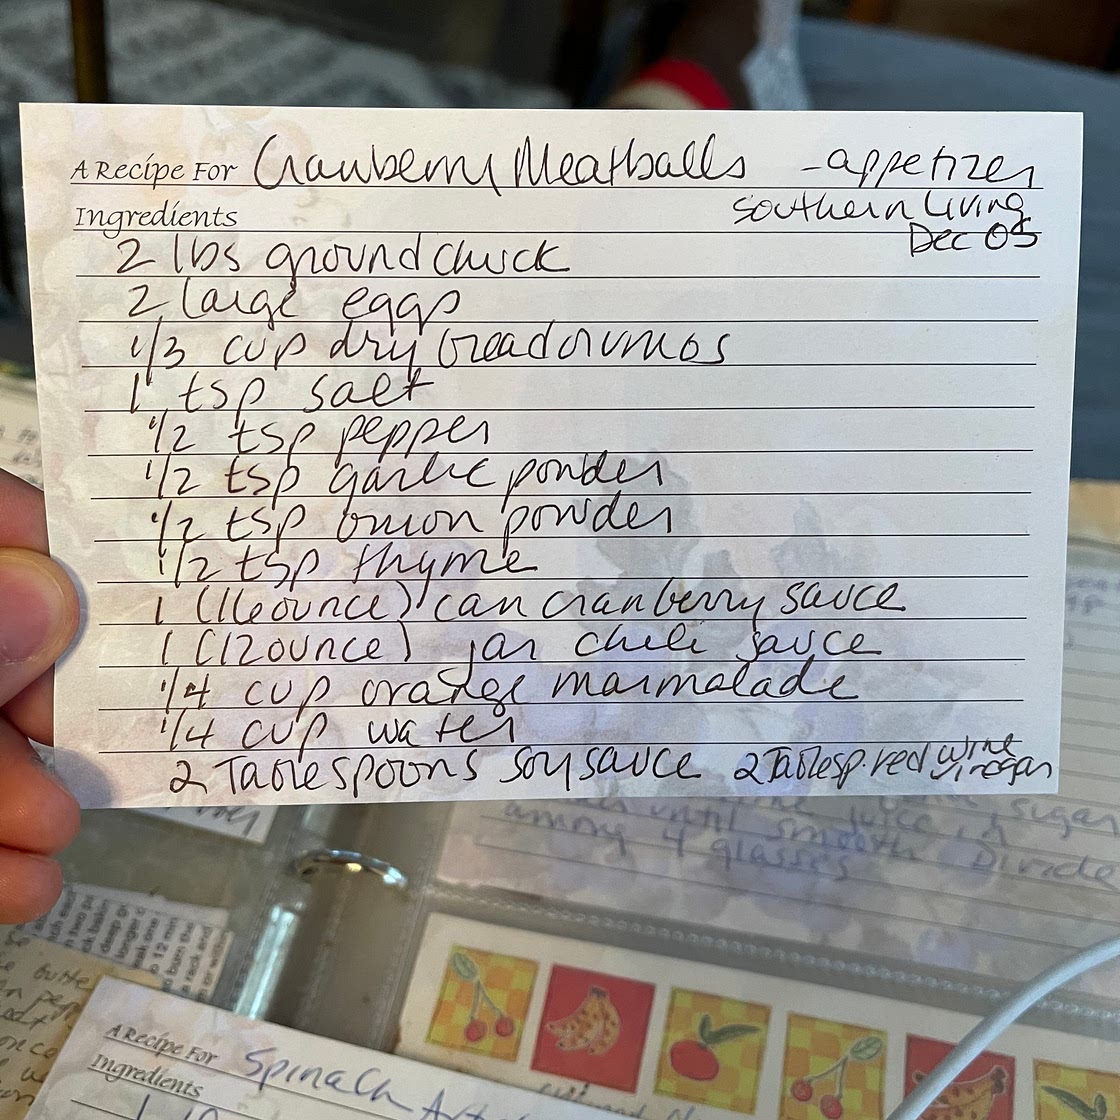 A Recipe For Cranberry Meatballs - appetizer
Ingredients Southern Living
Dec 05
2 lbs ground chuck
2 large eggs
1/3 cup dry breadcrumbs
1 tsp salt
1/2 tsp pepper
1/2 tsp garlic powder
1/2 tsp onion powder
1/2 tsp thyme
1 (16ounce) can cranberry sauce
1 (12ounce) jar chili sauce
1/4 cup orange marmalade
1/4 cup water
2 Tablespoons soysauce 2 Tablesp. red wine vinegar
sugar
until smooth Divide
among 4 glasses
A Recipe For Spinach
Ingredients